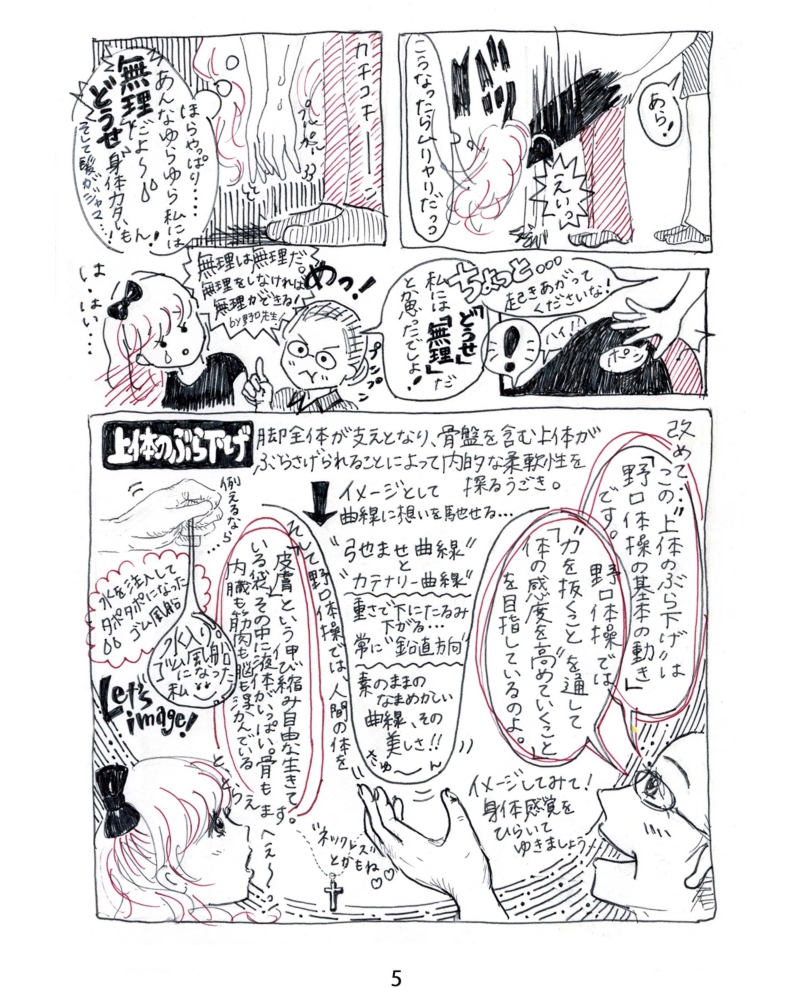 あら!
えいっ
バッ
こうなったらムリヤリだっっ
カチコキーーン
プルプル
ほらやっぱり・・・・
あんなゆらゆら私には
無理だよ〜
どうせ身体カタいもん!
そして髪がジャマ…!
ちょっと・・・
起きあがって
くださいな!
ハイ!!
ポン
!
私には「どうせ」
「無理」だ
と思ったでしょ!
プンプン
めっ!
無理は無理だ。
無理をしなければ
無理ができる!
by野口先生
は、はい・・・
上体のぶら下げ
脚全体が支えとなり、骨盤を含む上体が
ぶらさげられることによって内的な柔軟性を
探るうごき。
改めて…
この"上体のぶら下げ"は
「野口体操の基本の動き」
です。
野口体操では、
"力を抜くこと"を通して
「体の感度を高めていくこと」
を目指しているのよ。
イメージとして
曲線に想いを馳せる…
"弓だませと曲線"
カテナリー曲線"
重さで下にたるみ
下がる…
常に"鉛直方向"
素のままの
なまめかしい
曲線、その
美しさ!!
きゅ〜ん
そして野口体操では、人間の体を
「皮膚という伸び縮み自由な生きて
いる袋、その中に液体がいっぱい。骨もま
内臓も筋肉も脳も浮かんでいる」
ととらえ
ます。
例えるなら…
水を注入して
タポタポになった
ゴム風船
水入り
ゴム風船
になった
私
Let's
image!
へぇ〜〜っ
"ネックレス"
とかもね
イメージしてみて!
身体感覚を
ひらいて
ゆきましょう〜
5